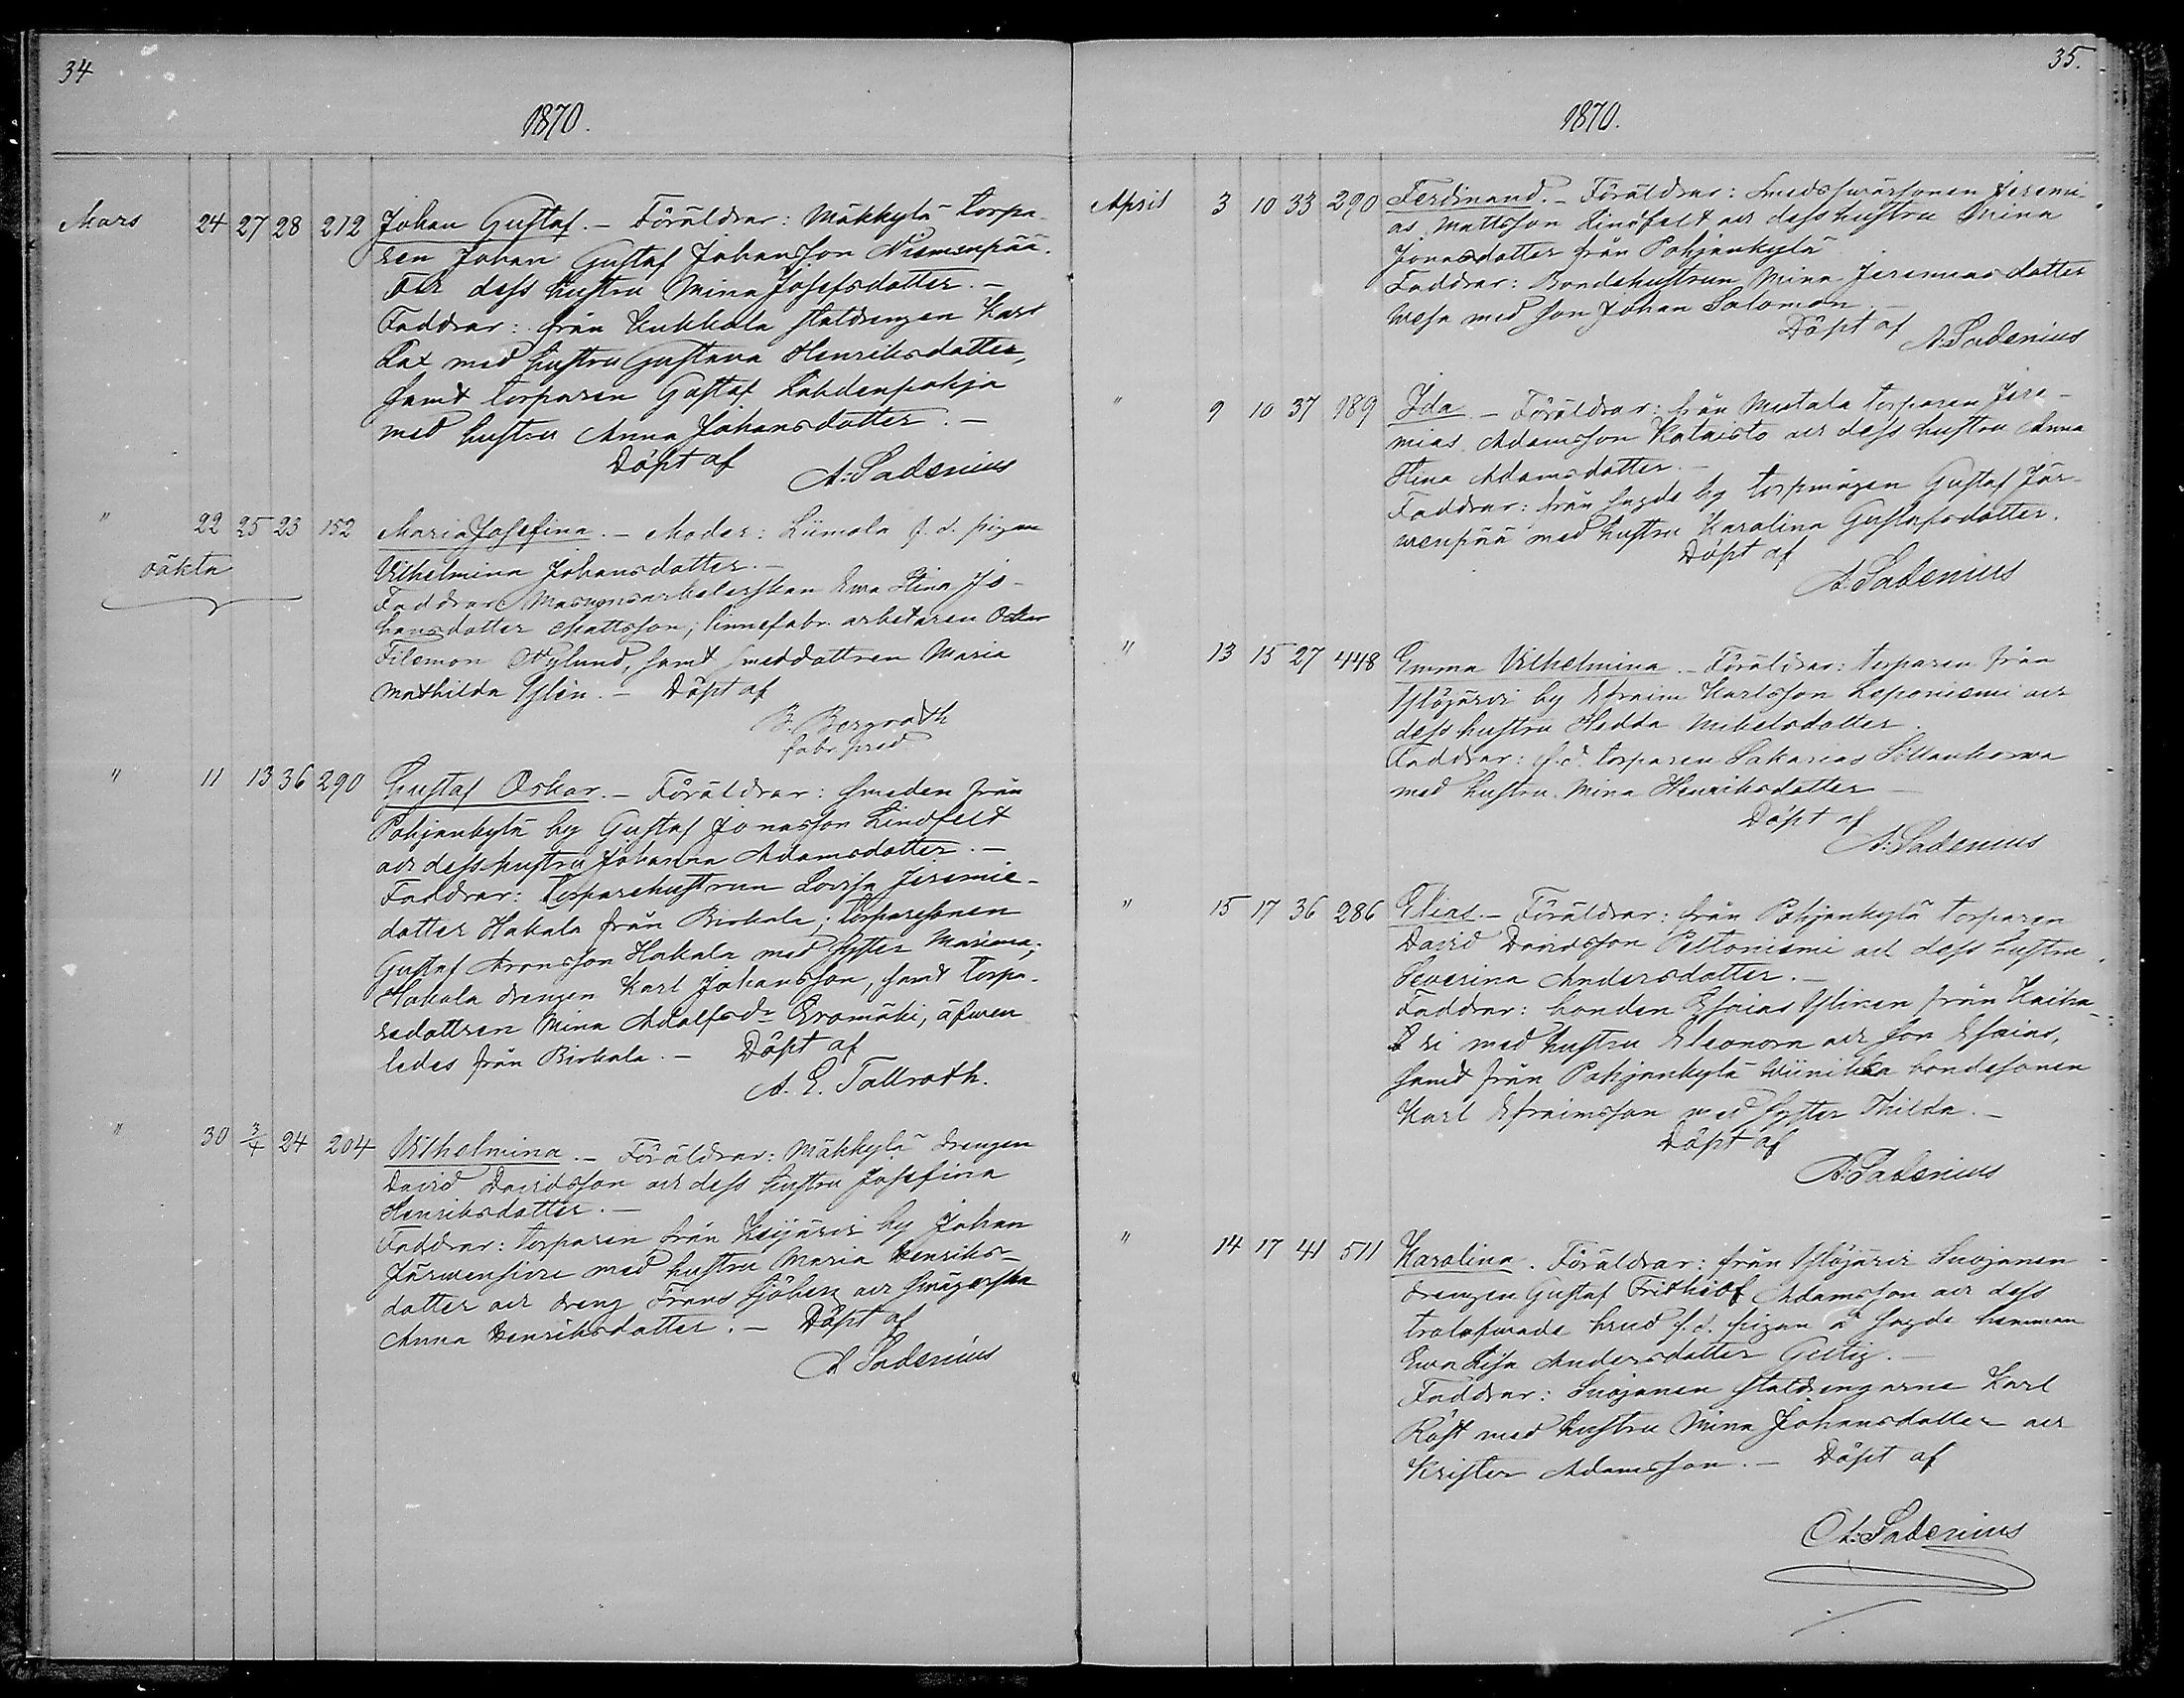 34
1870.
Mars 24 27 28 212 Johan Gustaf. – Föräldrar: Mäkkylä torpa-
ren Johan Gustaf Johansson Niemenpää
och dess hustru Mina Josefsdotter. –
Faddrar: från Kukkola statdrengen Karl
Lax med hustru Gustava Henriksdotter,
samt torparen Gustaf Lähdenpohja
med hustru Anna Johansdotter. –
Döpt af
A. Sadenius
" 22 25 23 152 Maria Josefina. – Moder: Liimola f. d. pigan
oäkta
Vilhelmina Johansdotter. –
Faddrar: Masugnsarbeterskan Ewa Stina Jo-
hansdotter Mattsson; linnefabr. arbetaren Oskar
Filemon Nylund, samt smeddottren Maria
Mathilda Ylén. – Döpt af
B. Bergroth
fabr. pred
" 11 13 36 290 Gustaf Oskar. – Föräldrar: smeden från
Pohjankylä by Gustaf Jonasson Lindfelt
och dess hustru Johanna Adamsdotter. –
Faddrar: torparehustrun Lovisa Jeremie-
dotter Hakala från Birkala; torparesonen
Gustaf Aronsson Hakala med syster Mariana;
Hakala drengen Karl Johansson, samt torpa-
redottren Mina Adolfsdr Eromäki, äfwen
ledes från Birkala. – Döpt af
A. E. Tallroth.
" 30 3/4 24 204 Vilhelmina. – Föräldrar: Mäkkylä drengen
David Davidsson och dess hustru Josefina
Henriksdotter. –
Faddrar: torparen från Keijärvi by Johan
Järvensivu med hustru Maria Henriks-
dotter och dreng Frans Sjöberg och swägerska
Anna Henriksdotter. – Döpt af
A Sadenius
35.
1870.
April 3 10 33 290 Ferdinand. – Föräldrar: Smedswärsonen Jeremi-
as Mattsson Lindfelt och dess hustru Mina
Jonasdotter från Pohjankylä
Faddrar: Bondehustrun Mina Jeremiasdotter
Wesa med son Johan Salomon. –
Döpt af A. Sadenius
" 9 10 37 189 Ida. – Föräldrar: från Mutala torparen Jere-
mias Adamsson Katajisto och dess hustru Anna
Stina Adamsdotter. –
Faddrar: från sagde by torpmågen Gustaf Jär-
wenpää med hustru Karolina Gustafsdotter.
Döpt af
A. Sadenius
" 13 15 27 448 Emma Vilhelmina. – Föräldrar: torparen från
Ylöjärvi by Efraim Karlsson Leponiemi och
dess hustru Hedda Mikelsdotter.
Faddrar: f. d. torparen Sakarias Sillankorwa
med hustru Mina Henriksdotter –
Döpt af
A. Sadenius
" 15 17 36 286 Elias. – Föräldrar: från Pohjankylä torparen
David Davidsson Peltoniemi och dess hustru
Severina Andersdotter. –
Faddrar: bonden Esaias Ylinen från Kaiha-
ri med hustru Eleonora och son Esaias,
samt från Pohjankylä Wiinikka bondesonen
Karl Efraimsson med syster Thilda. –
Döpt af
A. Sadenius
" 14 17 41 511 Karolina. Föräldrar: från Ylöjärvi Suojanen
drengen Gustaf Frithiof Adamsson och dess
trolofwade brud f. d. pigan å sagde hemman
Ewa Lisa Andersdotter Gestig. –
Faddrar: Suojanen statdrengarne Karl
Röst med hustru Mina Johansdotter och
Krister Adamsson. – Döpt af
A. Sadenius